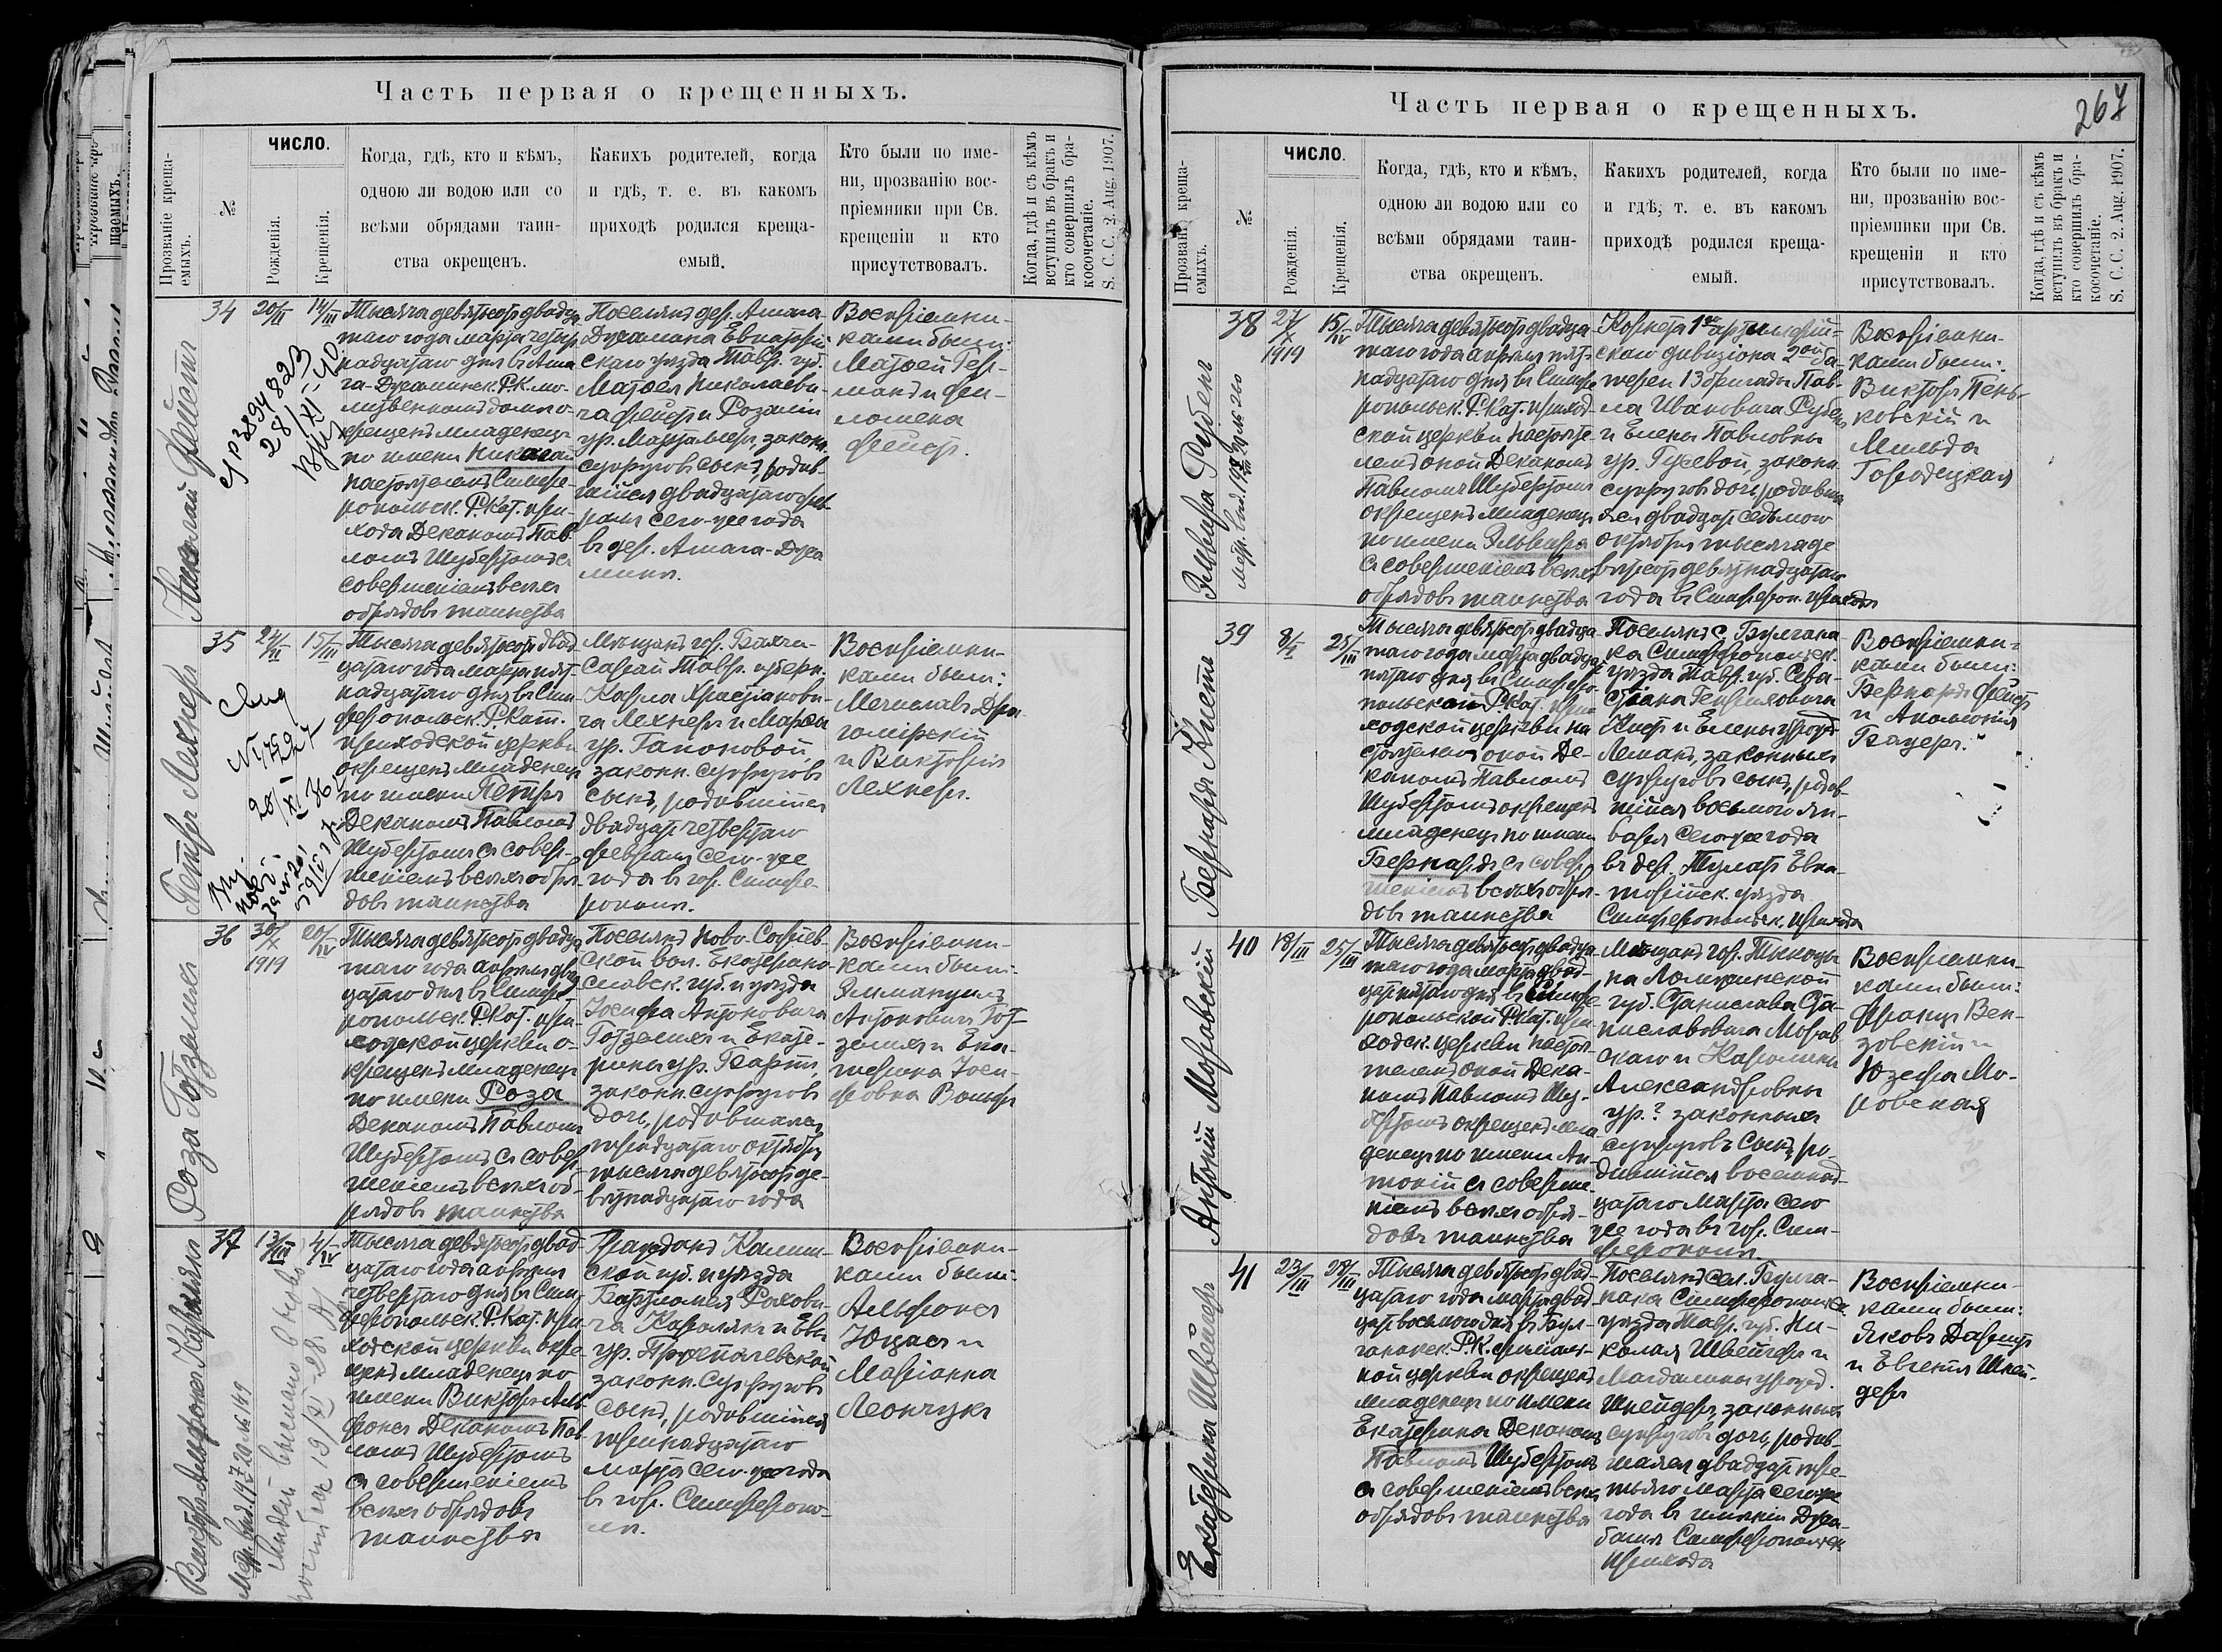 Часть первая о крещенныхъ.
Прозваніе креща-
емыхъ.
№
ЧИСЛО.
Рожденія.
Крещенія.
Когда, гдѣ, кто и кѣмъ,
одною ли водою или со
всѣми обрядами таин-
ства окрещенъ.
Какихъ родителей, когда
и гдѣ, т. е. въ какомъ
приходѣ родился креща-
емый.
Кто были по име-
ни, прозванію вос-
пріемники при Св.
крещеніи и кто
присутствовалъ.
Когда, гдѣ и съ кѣмъ
вступилъ въ бракъ и
кто совершилъ бра-
косочетаніе.
S. C. C. 2. Aug. 1907.
Николай Фейстъ
34
20/II
14/III
Тысяча девятьсот двадца
таго года марта четыр
надцатаго дня въ Атма
га-Джаминск. Р.К. мо-
литвенномъ домѣ о-
крещенъ младенецъ
по имени Николай
настоятелемъ Симфе-
ропольск. Р.Кат. при-
хода Деканомъ Пав
ломъ Шубертомъ с
совершеніемъ всѣхъ
обрядовъ таинства
Поселянъ дер.
Евпаторій
скаго уѣзда Тавр. губ.
Матвея Николаеви-
ча Фейстъ и Розаліи
ур. законн.
супруговъ сынъ, родив
шійся двадцатаго фев
раля сего-же года
въ дер.
Воспріемни-
ками были:
Матвей Гер-
манъ и Фи-
ломена
Фейстъ.
Петръ Лехнеръ
35
24/II
15/III
Тысяча девятьсот двад
цатаго года марта пят-
надцатаго дня въ Сим
феропольск. Р.Кат.
приходской церкви
окрещенъ младенец
по имени Петръ
Деканомъ Павломъ
Шубертомъ съ совер-
шеніемъ всѣхъ обря-
довъ таинства
Мѣщанъ гор. Бахчи-
Сарай Тавр. губерн.
Карла Христіанови-
ча Лехнеръ и Марѳы
ур. Гапоновой,
законн. супруговъ
сынъ, родившійся
двадцать четвертаго
февраля сего-же
года въ гор. Симфе-
рополѣ.
Воспріемни-
ками были:
Мечиславъ Дра-
гомірскій
и Викторія
Лехнеръ.
Роза Готзелихъ
36
30/X
1919
20/IV
Тысяча девятьсот двадца
таго года апрѣля два
цатаго дня въ Симфе
ропольск. Р.Кат. при-
ходской церкви о-
крещенъ младенецъ
по имени Роза
Деканомъ Павломъ
Шубертомъ съ совер-
шеніемъ всѣхъ об-
рядовъ таинства
Поселянъ Ново-Софіев-
ской вол. Екатерино-
славск. губ. и уѣзда
Іосифа Антоновича
Готзелихъ и Екате-
рины ур.
законн. супруговъ
дочь, родившаяся
тридцатаго октября
тысяча девятьсот де-
вятнадцатаго года
Воспріемни-
ками были:
Эммануилъ
Антоновичъ Гот-
зелихъ и Ека-
терина Іоси-
фовна Вольфъ
Викторъ-Альфонсъ Каролякъ
37
13/III
4/IV
Тысяча девятьсот двад-
цатаго года апрѣля
четвертаго дня въ Сим
феропольск. Р.Кат. при
ходской церкви окре-
щенъ младенецъ по
имени Викторъ-Аль-
фонсъ Деканомъ Пав-
ломъ Шубертомъ
съ совершеніемъ
всѣхъ обрядовъ
таинства
Гражданъ Калиш-
ской губ. и уѣзда
Бартломея
ча Каролякъ и Евы
ур.
законн. супруговъ
сынъ, родившійся
тринадцатаго
марта сего-же года
въ гор. Симферопо-
лѣ.
Воспріемни-
ками были:
Альфонсъ
Юцысъ и
Маріанна
Леончукъ
Часть первая о крещенныхъ.
267
Прозваніе креща-
емыхъ.
№
ЧИСЛО.
Рожденія.
Крещенія.
Когда, гдѣ, кто и кѣмъ,
одною ли водою или со
всѣми обрядами таин-
ства окрещенъ.
Какихъ родителей, когда
и гдѣ, т. е. въ какомъ
приходѣ родился креща-
емый.
Кто были по име-
ни, прозванію вос-
пріемники при Св.
крещеніи и кто
присутствовалъ.
Когда, гдѣ и съ кѣмъ
вступилъ въ бракъ и
кто совершилъ бра-
косочетаніе.
S. C. C. 2. Aug. 1907.
Эльвира Рубенъ
38
27/X
1919
15/IV
Тысяча девятьсот двадца
таго года апрѣля пят-
надцатаго дня въ Симфе
ропольск. Р.Кат. приход
ской церкви настояте-
лемъ оной Деканомъ
Павломъ Шубертомъ
окрещенъ младенецъ
по имени Эльвира
съ совершеніемъ всѣхъ
обрядовъ таинства
Корнета 1го артиллерій-
скаго дивизіона 2ой ба-
тереи 13 бригады Пав-
ла Ивановича Рубенъ
и Елены Павловны
ур. Гусевой, законн.
супруговъ дочь, родивша
яся двадцать седьмого
октября тысяча де
вятьсот девятнадцатаго
года въ Симфероп. приходѣ
Воспріемни-
ками были:
Викторъ Пень-
ковскій и
Мильда
Городецкая
Бернардъ Кистъ
39
8/I
25/III
Тысяча девятьсот двадца-
таго года марта двадцать
пятаго дня въ Симферо-
польской Р.Кат. при
ходской церкви на
стоятелемъ оной Де-
каномъ Павломъ
Шубертомъ окрещенъ
младенецъ по имени
Бернардъ съ совер-
шеніемъ всѣхъ обря-
довъ таинства
Поселянъ с. Булгана
ка Симферопольск.
уѣзда Тавр. губ. Сева-
стіана Генриховича
Кистъ и Елены урожд
Леманъ, законныхъ
супруговъ сынъ, родив-
шійся восьмого ян-
варя сего-же года
въ дер. Евпа-
торійск. уѣзда
Симферопольск. прихода
Воспріемни-
ками были:
Бернардъ Фейстъ
и Аполлонія
Бауеръ.
Антоній Моравскій
40
18/III
25/III
Тысяча девятьсот двадца-
таго года марта двад-
цать пятаго дня въ Симфе
ропольской Р.Кат. при
ходск. церкви настоя-
телемъ оной Дека-
номъ Павломъ Шу-
бертомъ окрещенъ мла
денецъ по имени Ан-
тоній съ соверше-
ніемъ всѣхъ обря-
довъ таинства
Мѣщанъ гор. Тыкоци
на Ломжинской
губ. Станислава Ста-
ниславовича Морав
скаго и Каролины
Александровны
ур. ? законныхъ
супруговъ сынъ, ро-
дившійся восемнад-
цатаго марта сего
же года въ гор. Сим-
ферополѣ
Воспріемни-
ками были:
Францъ Вен-
зовскій и
Юзефа Мо-
ровская
Екатерина Швейгеръ
41
23/III
28/III
Тысяча девятьсот двад-
цатаго года марта двад-
цать восьмого дня въ Бул-
ганакск. Р.К. филіаль-
ной церкви окрещенъ
младенецъ по имени
Екатерина Деканомъ
Павломъ Шубертомъ
съ совершеніемъ всѣхъ
обрядовъ таинства
Поселянъ сел. Булга-
нака Симферопольск.
уѣзда Тавр. губ. Ни-
колая Швейгеръ и
Магдалины урожд.
Шнейдеръ, законныхъ
супруговъ дочь, родив-
шаяся двадцать тре-
тьяго марта сего-же
года въ имѣніи Джа-
Симферопольск.
прихода
Воспріемни-
ками были:
Яковъ
и Евгенія Шней-
деръ